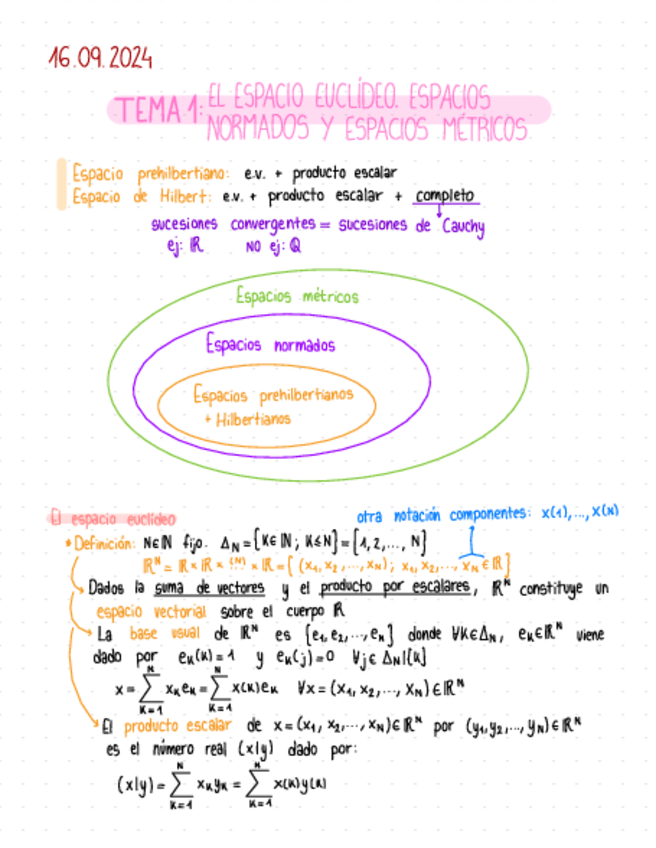 16.09.2024
TEMA 1: EL ESPACIO EUCLÍDEO. ESPACIOS
NORMADOS Y ESPACIOS MÉTRICOS
Espacio prehilbertiano: e.v. + producto escalar
Espacio de Hilbert: e.v. + producto escalar + completo
sucesiones convergentes = sucesiones de Cauchy
ej: ℝ NO ej: ℚ
Espacios métricos
Espacios normados
Espacios prehilbertianos
+ Hilbertianos
El espacio euclídeo
otra notación componentes: x(1),..., x(N)
• Definición: N∈ℕ fijo. Δ_N = {k∈ℕ; k≤N} = {1,2,..., N}
ℝ^N = ℝ × ℝ × ^(N) × ℝ = { (x₁, x₂,..., x_N); x₁, x₂,..., x_N ∈ ℝ }
Dados la suma de vectores y el producto por escalares, ℝ^N constituye un
espacio vectorial sobre el cuerpo ℝ
La base usual de ℝ^N es {e₁, e₂,..., e_n} donde ∀k∈Δ_N, e_k∈ℝ^N viene
dado por e_k(k)=1 y e_k(j)=0 ∀j∈Δ_N\{k}
x = ∑_{k=1}^{N} x_k e_k = ∑_{k=1}^{N} x(k)e_k ∀x = (x₁, x₂,..., x_N) ∈ ℝ^N
El producto escalar de x = (x₁, x₂,..., x_N) ∈ ℝ^N por (y₁, y₂,..., y_N) ∈ ℝ^N
es el número real (x|y) dado por:
(x|y) = ∑_{k=1}^{N} x_k y_k = ∑_{k=1}^{N} x(k)y(k)